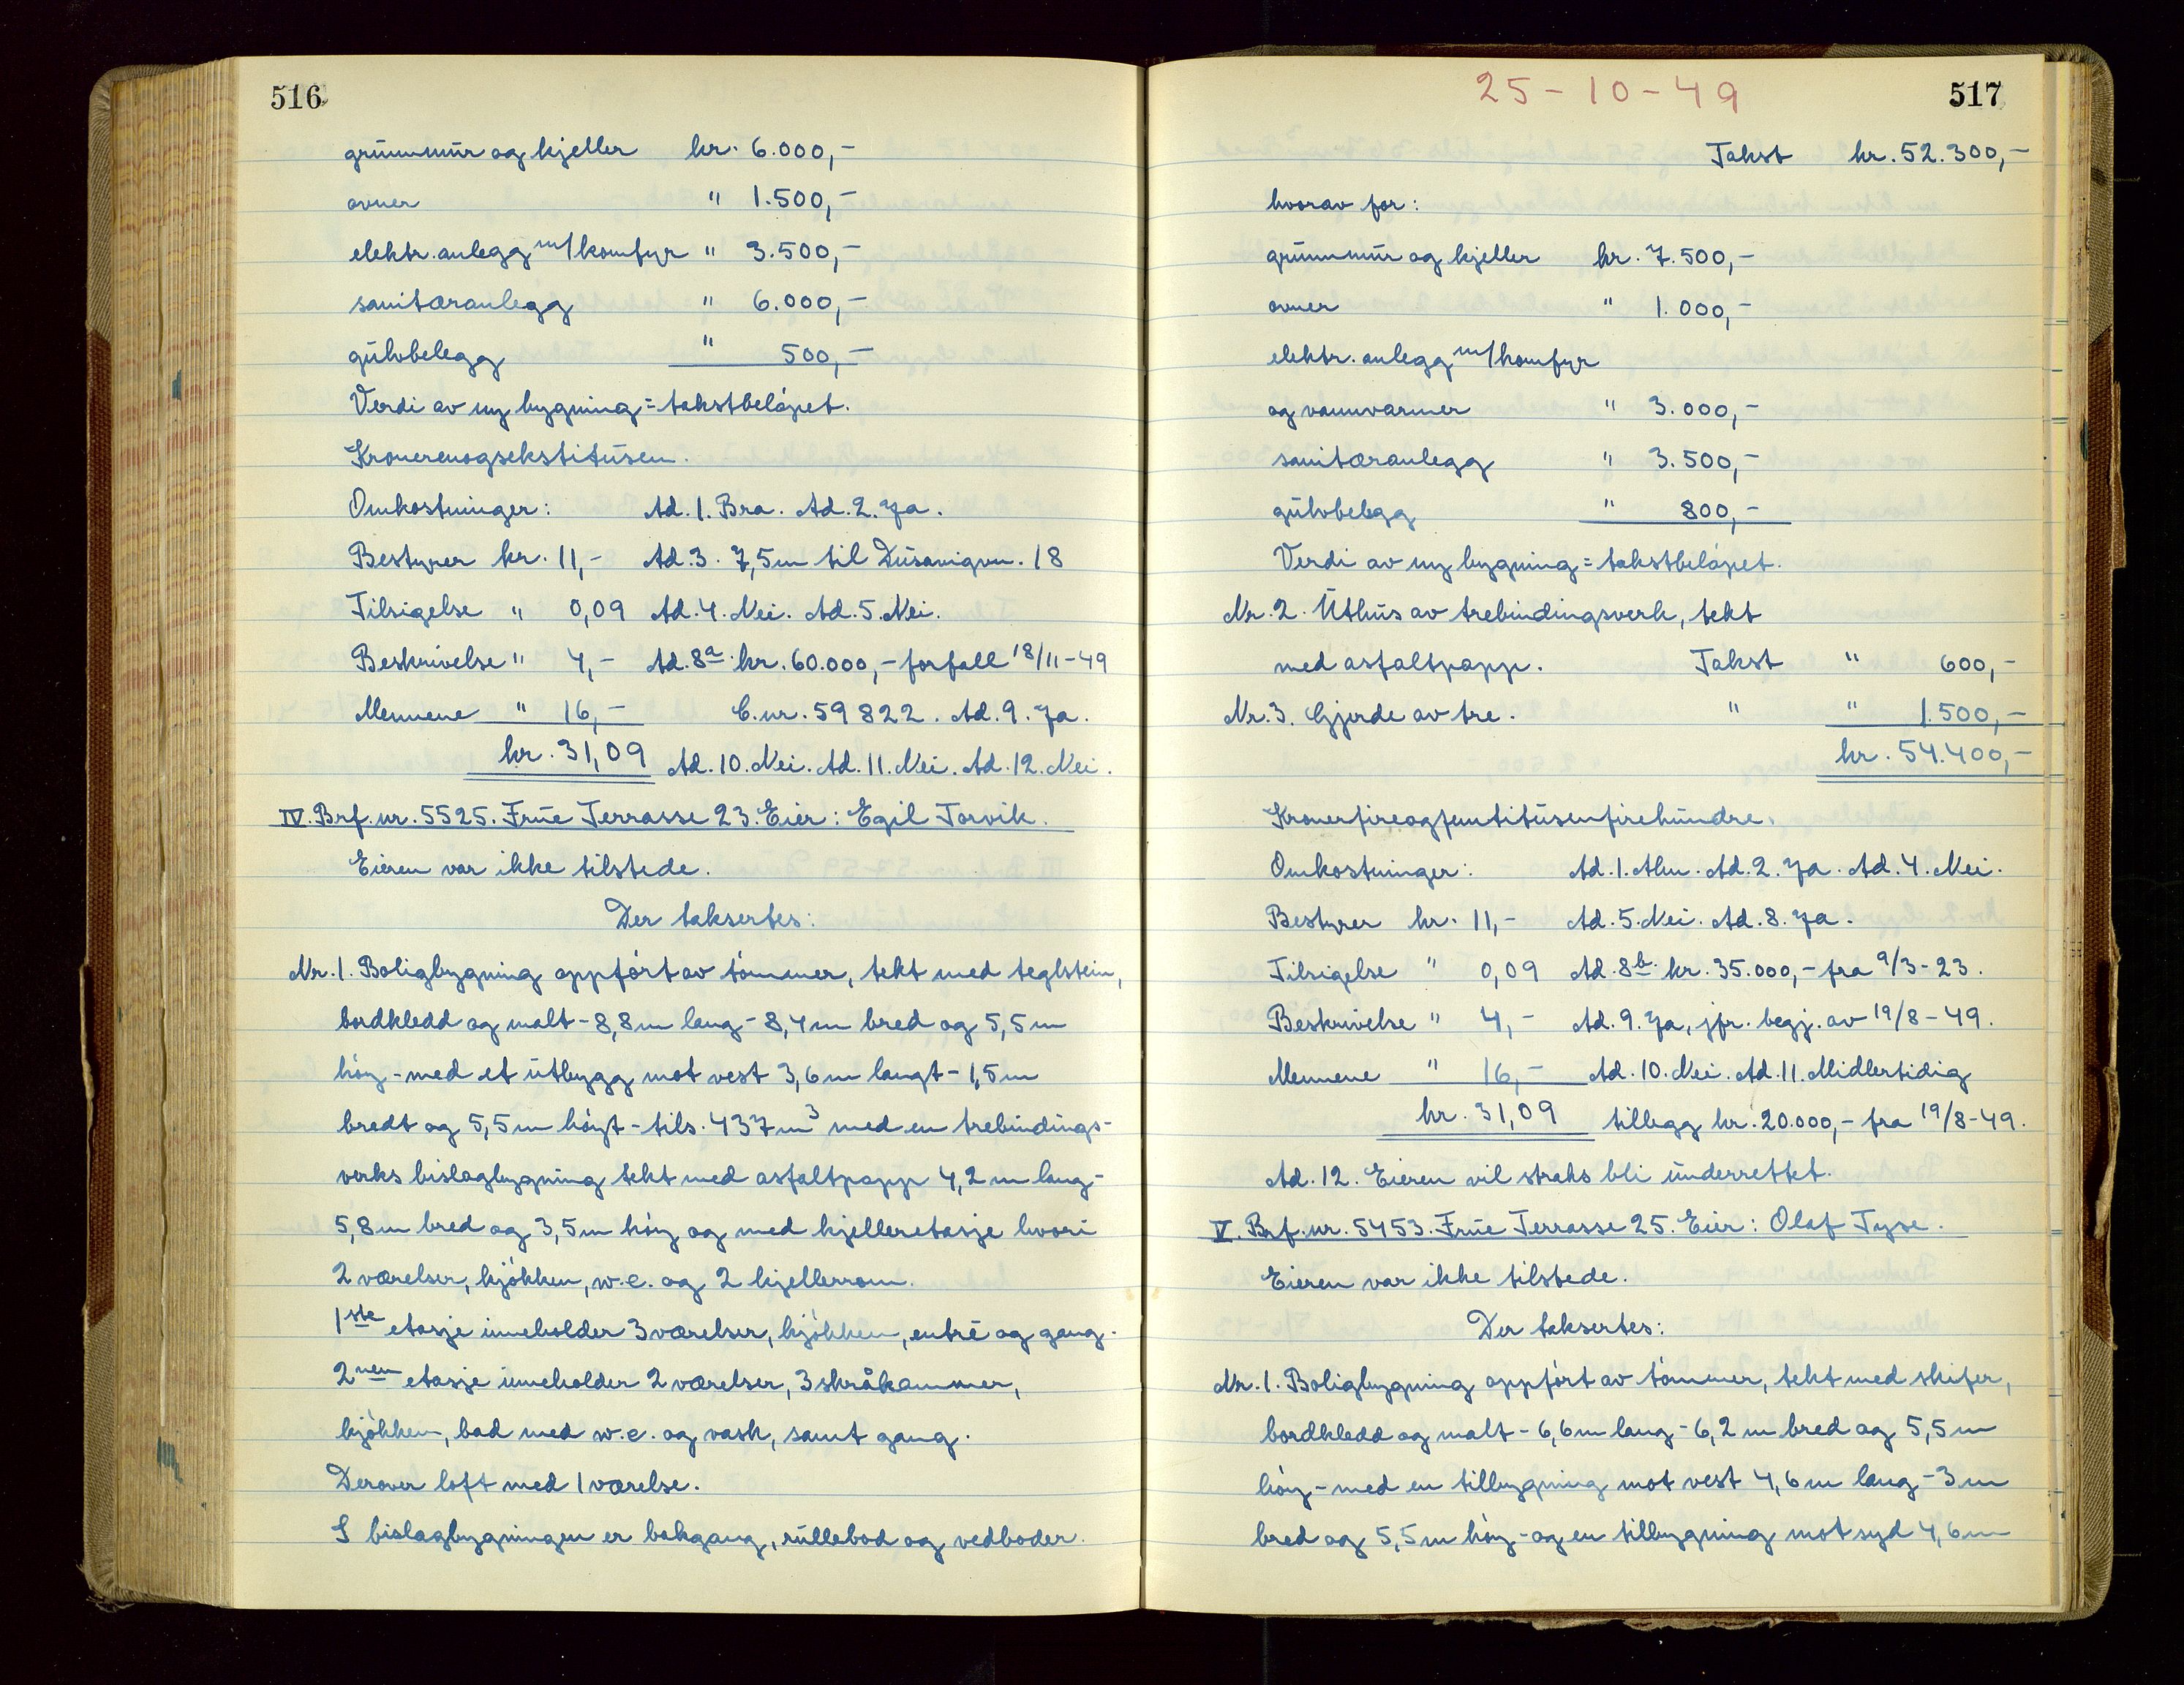 516
grunnmur og kjeller kr. 6.000,-
ovner " 1.500,-
elektr. anlegg m/komfyr " 3.500,-
sanitæranlegg " 6.000,-
gulvbelegg " 500,-
Verdi av ny bygning = takstbeløpet.
Kronerenogsekstitusen.
Omkostninger: Ad. 1. Bra. Ad. 2. Ja.
Bestyrer kr. 11,- Ad. 3. 7,5m til Dusavigvn. 18
Tilsigelse " 0,09 Ad. 4. Nei. Ad. 5. Nei.
Beskrivelse " 4,- Ad. 8a. kr. 60.000,- forfall 18/11-49
Mennene " 16,- C.nr. 59822. Ad. 9. Ja.
kr. 31,09 Ad. 10. Nei. Ad. 11. Nei. Ad. 12. Nei.
IV. Brf. nr. 5525. Frue Terrasse 23. Eier: Egil Torvik.
Eieren var ikke tilstede.
Der taksertes:
Nr. 1. Boligbygning oppført av tømmer, tekt med teglstein,
bordkledd og malt - 8,8m lang - 8,4m bred og 5,5m
høy - med et utbygg mot vest 3,6m langt - 1,5m
bredt og 5,5m høyt - tils. 437m³ med en trebindings-
verks bislagbygning tekt med asfaltpapp 4,2m lang -
5,8m bred og 3,5m høy og med kjelleretasje hvori
2 værelser, kjøkken, w.c. og 2 kjellerrom.
1ste etasje inneholder 3 værelser, kjøkken, entré og gang.
2nen etasje inneholder 2 værelser, 3 skråkammer,
kjøkken, bad med w.c. og vask, samt gang.
Derover loft med 1 værelse.
I bislagbygningen er bakgang, rullebod og vedboder.
25-10-49
517
Takst kr. 52.300,-
hvorav for:
grunnmur og kjeller kr. 7.500,-
ovner " 1.000,-
elektr. anlegg m/komfyr
og vannvarmer " 3.000,-
sanitæranlegg " 3.500,-
gulvbelegg " 800,-
Verdi av ny bygning = takstbeløpet.
Nr. 2. Uthus av trebindingsverk, tekt
med asfaltpapp. Takst " 600,-
Nr. 3. Gjerde av tre. " " 1.500,-
kr. 54.400,-
Kronerfireogfemtitusenfirehundre.
Omkostninger: Ad. 1. Alm. Ad. 2. Ja. Ad. 4. Nei.
Bestyrer kr. 11,- Ad. 5. Nei. Ad. 8. Ja.
Tilsigelse " 0,09 Ad. 8b. kr. 35.000,- fra 9/3-23.
Beskrivelse " 4,- Ad. 9. Ja, jfr. begj. av 19/8-49.
Mennene " 16,- Ad. 10. Nei. Ad. 11. Midlertidig
kr. 31,09 tillegg kr. 20.000,- fra 19/8-49.
Ad. 12. Eieren vil straks bli underrettet.
V. Brf. nr. 5453. Frue Terrasse 25. Eier: Olaf Tyse.
Eieren var ikke tilstede.
Der taksertes:
Nr. 1. Boligbygning oppført av tømmer, tekt med skifer,
bordkledd og malt - 6,6m lang - 6,2m bred og 5,5m
høy - med en tilbygning mot vest 4,6m lang - 3m
bred og 5,5m høy - og en tilbygning mot syd 4,6m